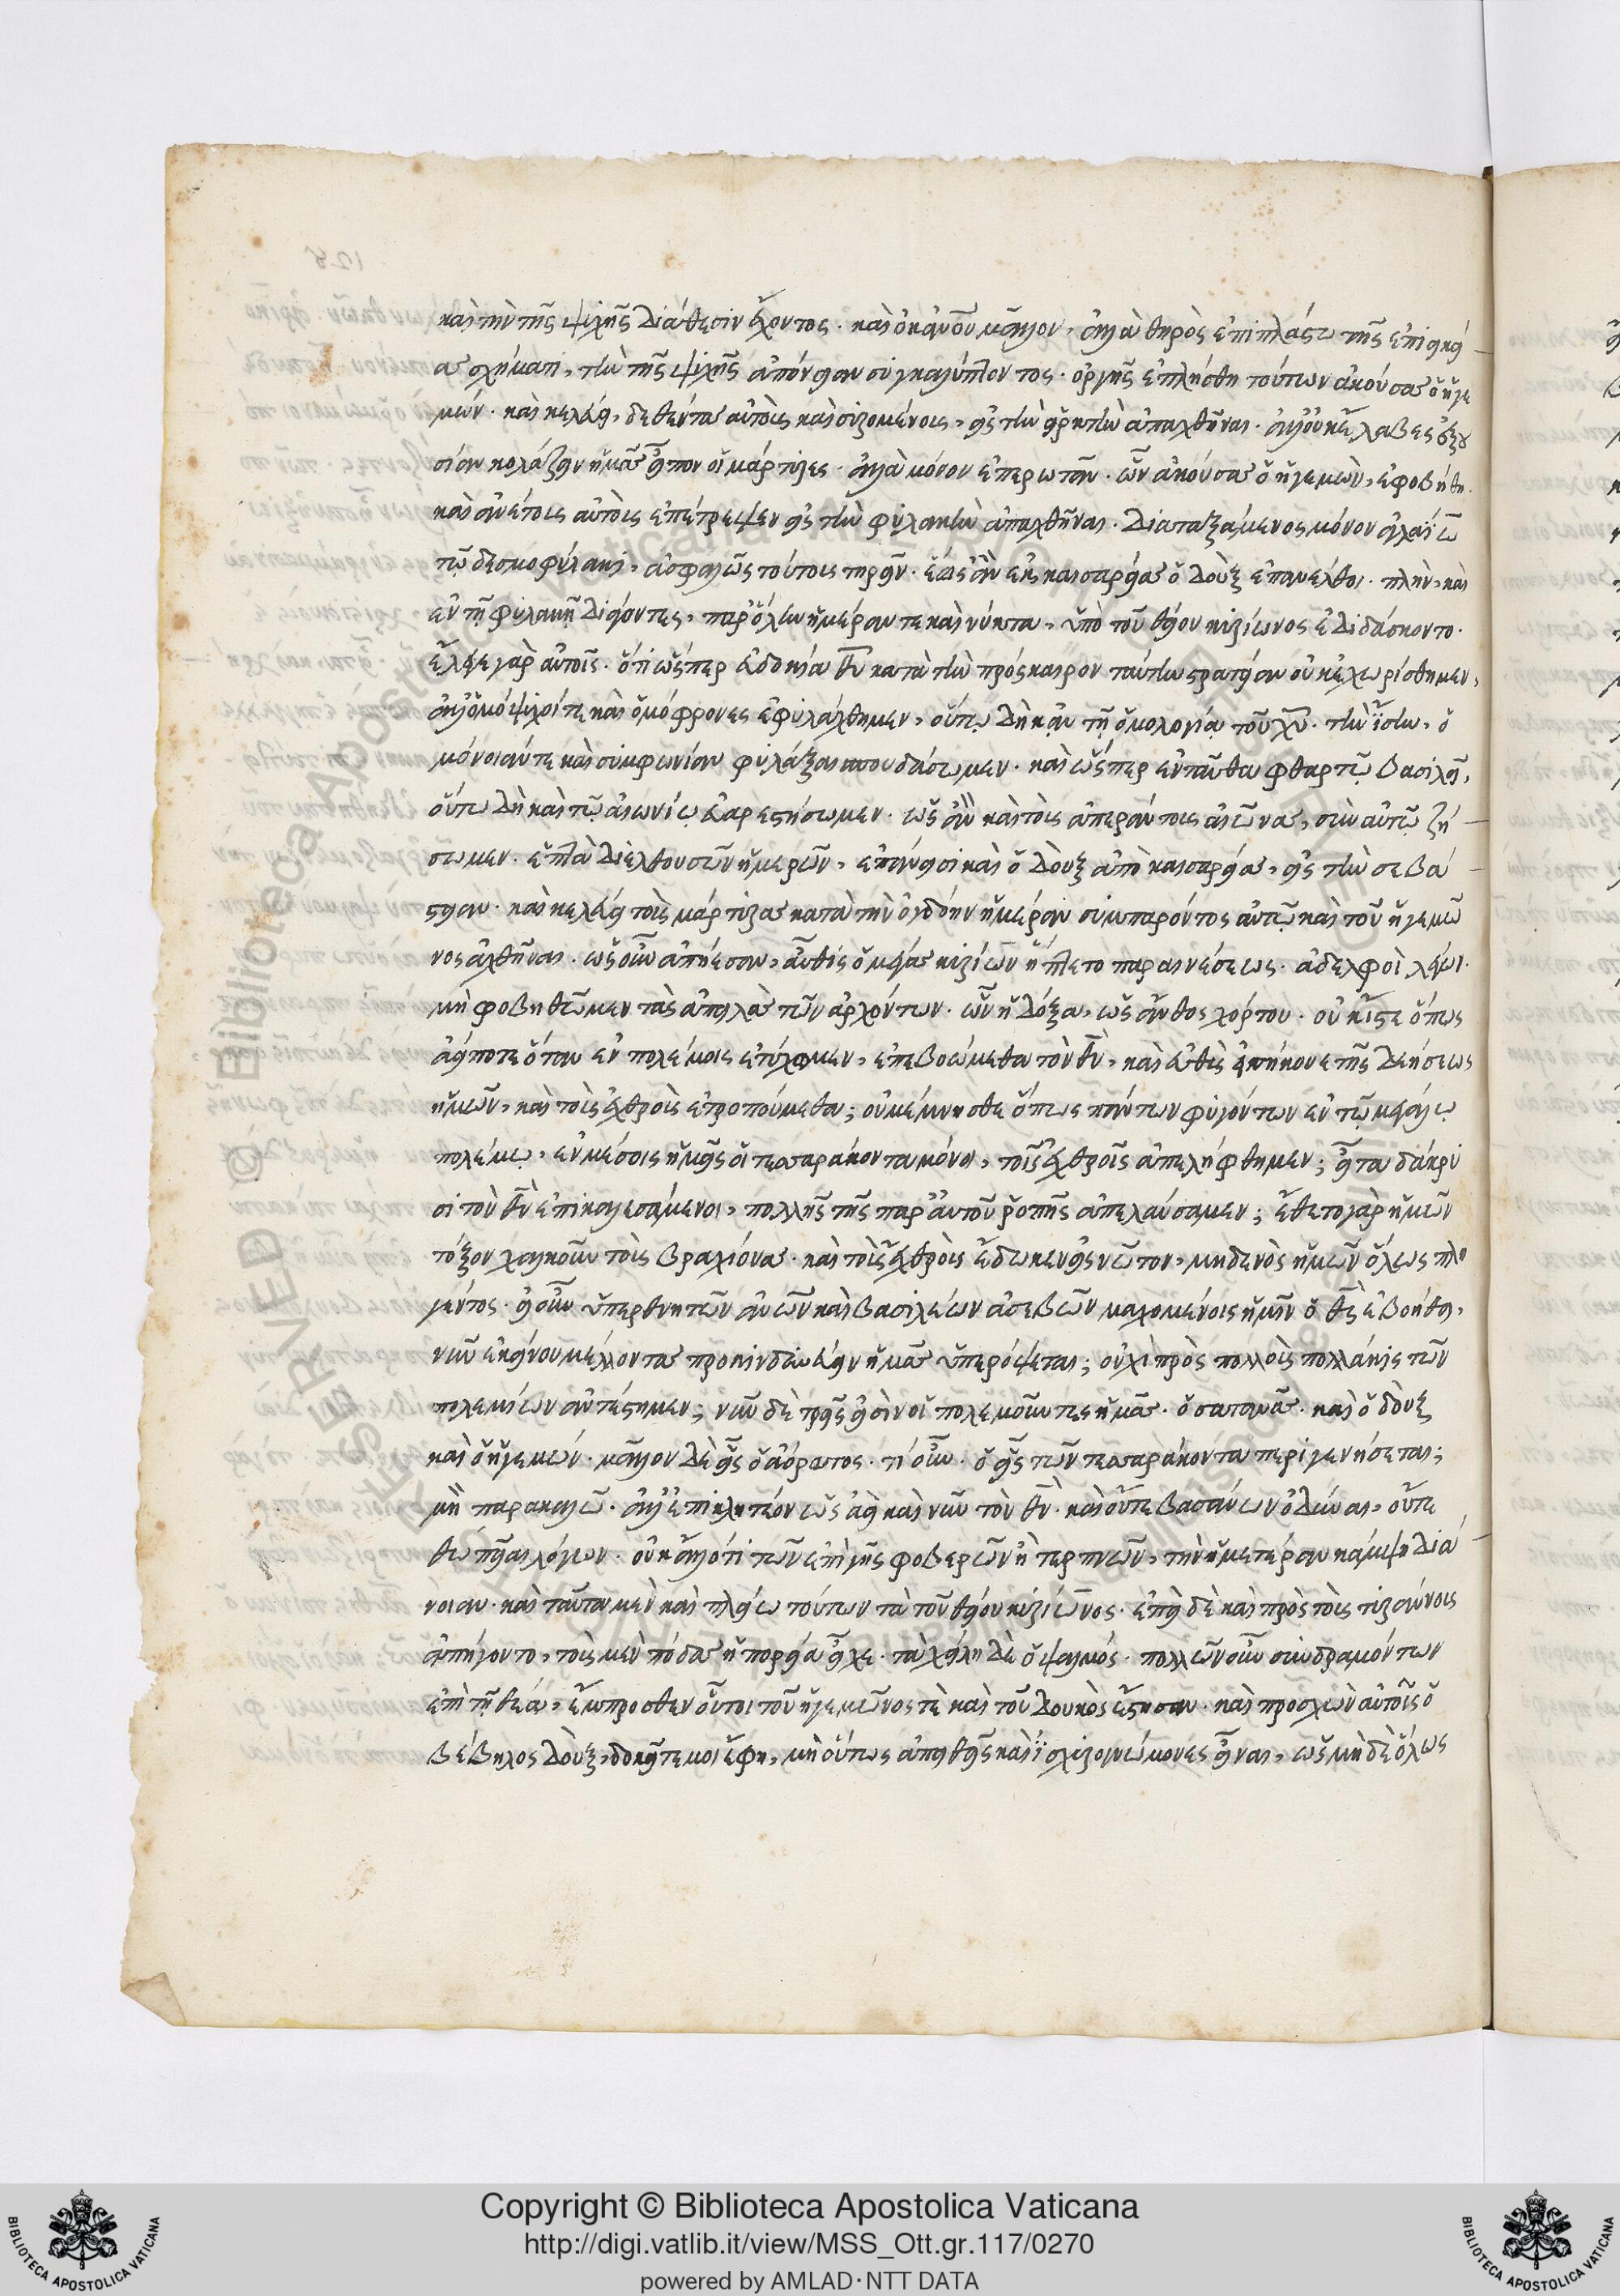 καὶ τὴν τῆς ψυχῆς διάθεσιν ἔχοντος· καὶ οὐκ ἂν οὐ μᾶλλον, ἀλλὰ θηρὸς ἐπιπλάστω τῆς ἐπιεικεί
ας σχήματι, τὴν τῆς ψυχῆς ἀπόνοιαν συγκαλύπτοντος· ὀργῆς ἐπλήσθη τούτων ἀκούσας ὁ ἡγε
μών· καὶ κελεύει, δεθέντας αὐτοὺς καὶ συρομένους, εἰς τὴν εἱρκτὴν ἀπαχθῆναι· ἀλλ' οὐκ ἔλαβες ἐξου
σίαν κολάζειν ἡμᾶς εἶπον οἱ μάρτυρες· ἀλλὰ μόνον ἐπερωτᾶν· ὧν ἀκούσας ὁ ἡγεμὼν, ἐφοβήθη·
καὶ ἀνέτους αὐτοὺς ἐπέτρεψεν εἰς τὴν φυλακὴν ἀπαχθῆναι· διαταξάμενος μόνον ἀγλαΐω
τῷ δεσμοφύλακι, ἀσφαλῶς τούτους τηρεῖν· ἕως ἂν ἐκ καισαρείας ὁ δοὺξ ἐπανέλθοι· πλὴν, καὶ
ἐν τῇ φυλακῇ διάγοντες, παρ' ὅλην ἡμέραν τε καὶ νύκτα, ὑπὸ τοῦ θείου κυρίωνος ἐδιδάσκοντο·
ἔλεγε γὰρ αὐτοῖς· ὅτι ὥσπερ εὐδοκία θυ κατὰ τὴν πρόσκαιρον ταύτην στρατείαν οὐκ ἐχωρίσθημεν,
ἀλλ' ὁμόψυχοί τε καὶ ὁμόφρονες ἐφυλάχθημεν, οὕτω δὴ κἂν τῇ ὁμολογία τοῦ χυ· τὴν ἴσην, ὁ
μόνοιάν τε καὶ συμφωνίαν φυλάξαι σπουδάσωμεν· καὶ ὥσπερ ἐνταῦθα φθαρτῷ βασιλεῖ,
οὕτω δὴ καὶ τῷ αἰωνίῳ εὐαρεστήσωμεν· ὡς ἂν καὶ τοὺς ἀπεράντους αἰῶνας, σὺν αὐτῷ ζή
σωμεν· ἑπτὰ διελθουσῶν ἡμερῶν, ἐπάνεισι καὶ ὁ δοὺξ ἀπὸ καισαρείας, εἰς τὴν σεβά
στειαν· καὶ κελεύει τοὺς μάρτυρας κατὰ τὴν ὀγδόην ἡμέραν συμπαρόντος αὐτῷ καὶ τοῦ ἡγεμῶ
νος ἀχθῆναι· ὡς οὖν ἀπήεσαν, αὖθις ὁ μέγας κυρίων ἥπτετο παραινέσεως· ἀδελφοὶ λέγων·
μὴ φοβηθῶμεν τὰς ἀπειλὰς τῶν ἀρχόντων· ὧν ἡ δόξα, ὡς ἄνθος χόρτου· οὐκ ἴστε ὅπως
ἀείποτε ὅταν ἐν πολέμοις ἐτύχομεν, ἐπεβοώμεθα τὸν θν, καὶ εὐθὺς ἐπήκουε τῆς δεήσεως
ἡμῶν, καὶ τοὺς ἐχθροὺς ἐτροπούμεθα; οὐ μέμνησθε ὅπως πάντων φυγόντων ἐν τῷ μεγάλω
πολέμῳ, ἐν μέσοις ἡμεῖς οἱ τεσσαράκοντα μόνοι, τοῖς ἐχθροῖς ἀπελήφθημεν; εἶτα δάκρυ
σι τὸν θν ἐπικαλεσάμενοι, πολλῆς τῆς παρ' αὐτοῦ ῥοπῆς ἀπελαύσαμεν; ἔθετο γὰρ ἡμῶν
τόξον χαλκοῦν τοὺς βραχίονας· καὶ τοὺς ἐχθροὺς ἔδωκεν εἰς νῶτον, μηδενὸς ἡμῶν ὅλως πλη
γέντος· εἰ οὖν ὑπὲρ θνητῶν ἀνων καὶ βασιλέων ἀσεβῶν μαχομένοις ἡμῖν ὁ θς ἐβοήθει,
νῦν ἐκείνου μέλλοντας προκινδυνεύειν ἡμᾶς ὑπερόψεται; οὐχὶ πρὸς πολλοὺς πολλάκις τῶν
πολεμίων ἀντέστημεν; νῦν δὲ τρεῖς εἰσὶν οἱ πολεμοῦντες ἡμᾶς· ὁ σατανᾶς· καὶ ὁ δοὺξ
καὶ ὁ ἡγεμών· μᾶλλον δὲ εἷς ὁ ἀόρατος· τί οὖν· ὁ εἷς τῶν τεσσαράκοντα περιγενήσεται;
μὴ παρακαλῶ· ἀλλ' ἐπικλητέον ὡς ἀεὶ καὶ νῦν τὸν θν· καὶ οὔτε βασάνων ὀδύναι, οὔτε
θωπεῖαι λόγων· οὐκ ἄλλό τι τῶν ἐπὶ γῆς φοβερῶν ἢ τερπνῶν, τὴν ἡμετέραν κάμψει διά
νοιαν· καὶ ταῦτα μὲν καὶ πλείω τούτων τὰ τοῦ θείου κυρίωνος· ἐπεὶ δὲ καὶ πρὸς τοὺς τυράννους
ἀπήγοντο, τοὺς μὲν πόδας ἡ πορεία εἶχε· τὰ χείλη δὲ ὁ ψαλμός· πολλῶν οὖν συνδραμόντων
ἐπὶ τῇ θέα, ἔμπροσθεν οὗτοι τοῦ ἡγεμῶνος τὲ καὶ τοῦ δουκὸς ἔστησαν· καὶ προσχὼν αὐτοῖς ὁ
βέβηλος δοὺξ, δοκεῖτε μοι ἔφη, μὴ οὕτως ἀπειθεῖς καὶ ἰσχυρογνώμονες εἶναι, ὡς μὴ δὲ ὅλως
Copyright © Biblioteca Apostolica Vaticana
http://digi.vatlib.it/view/MSS_Ott.gr.117/0270
powered by AMLAD·NTT DATA